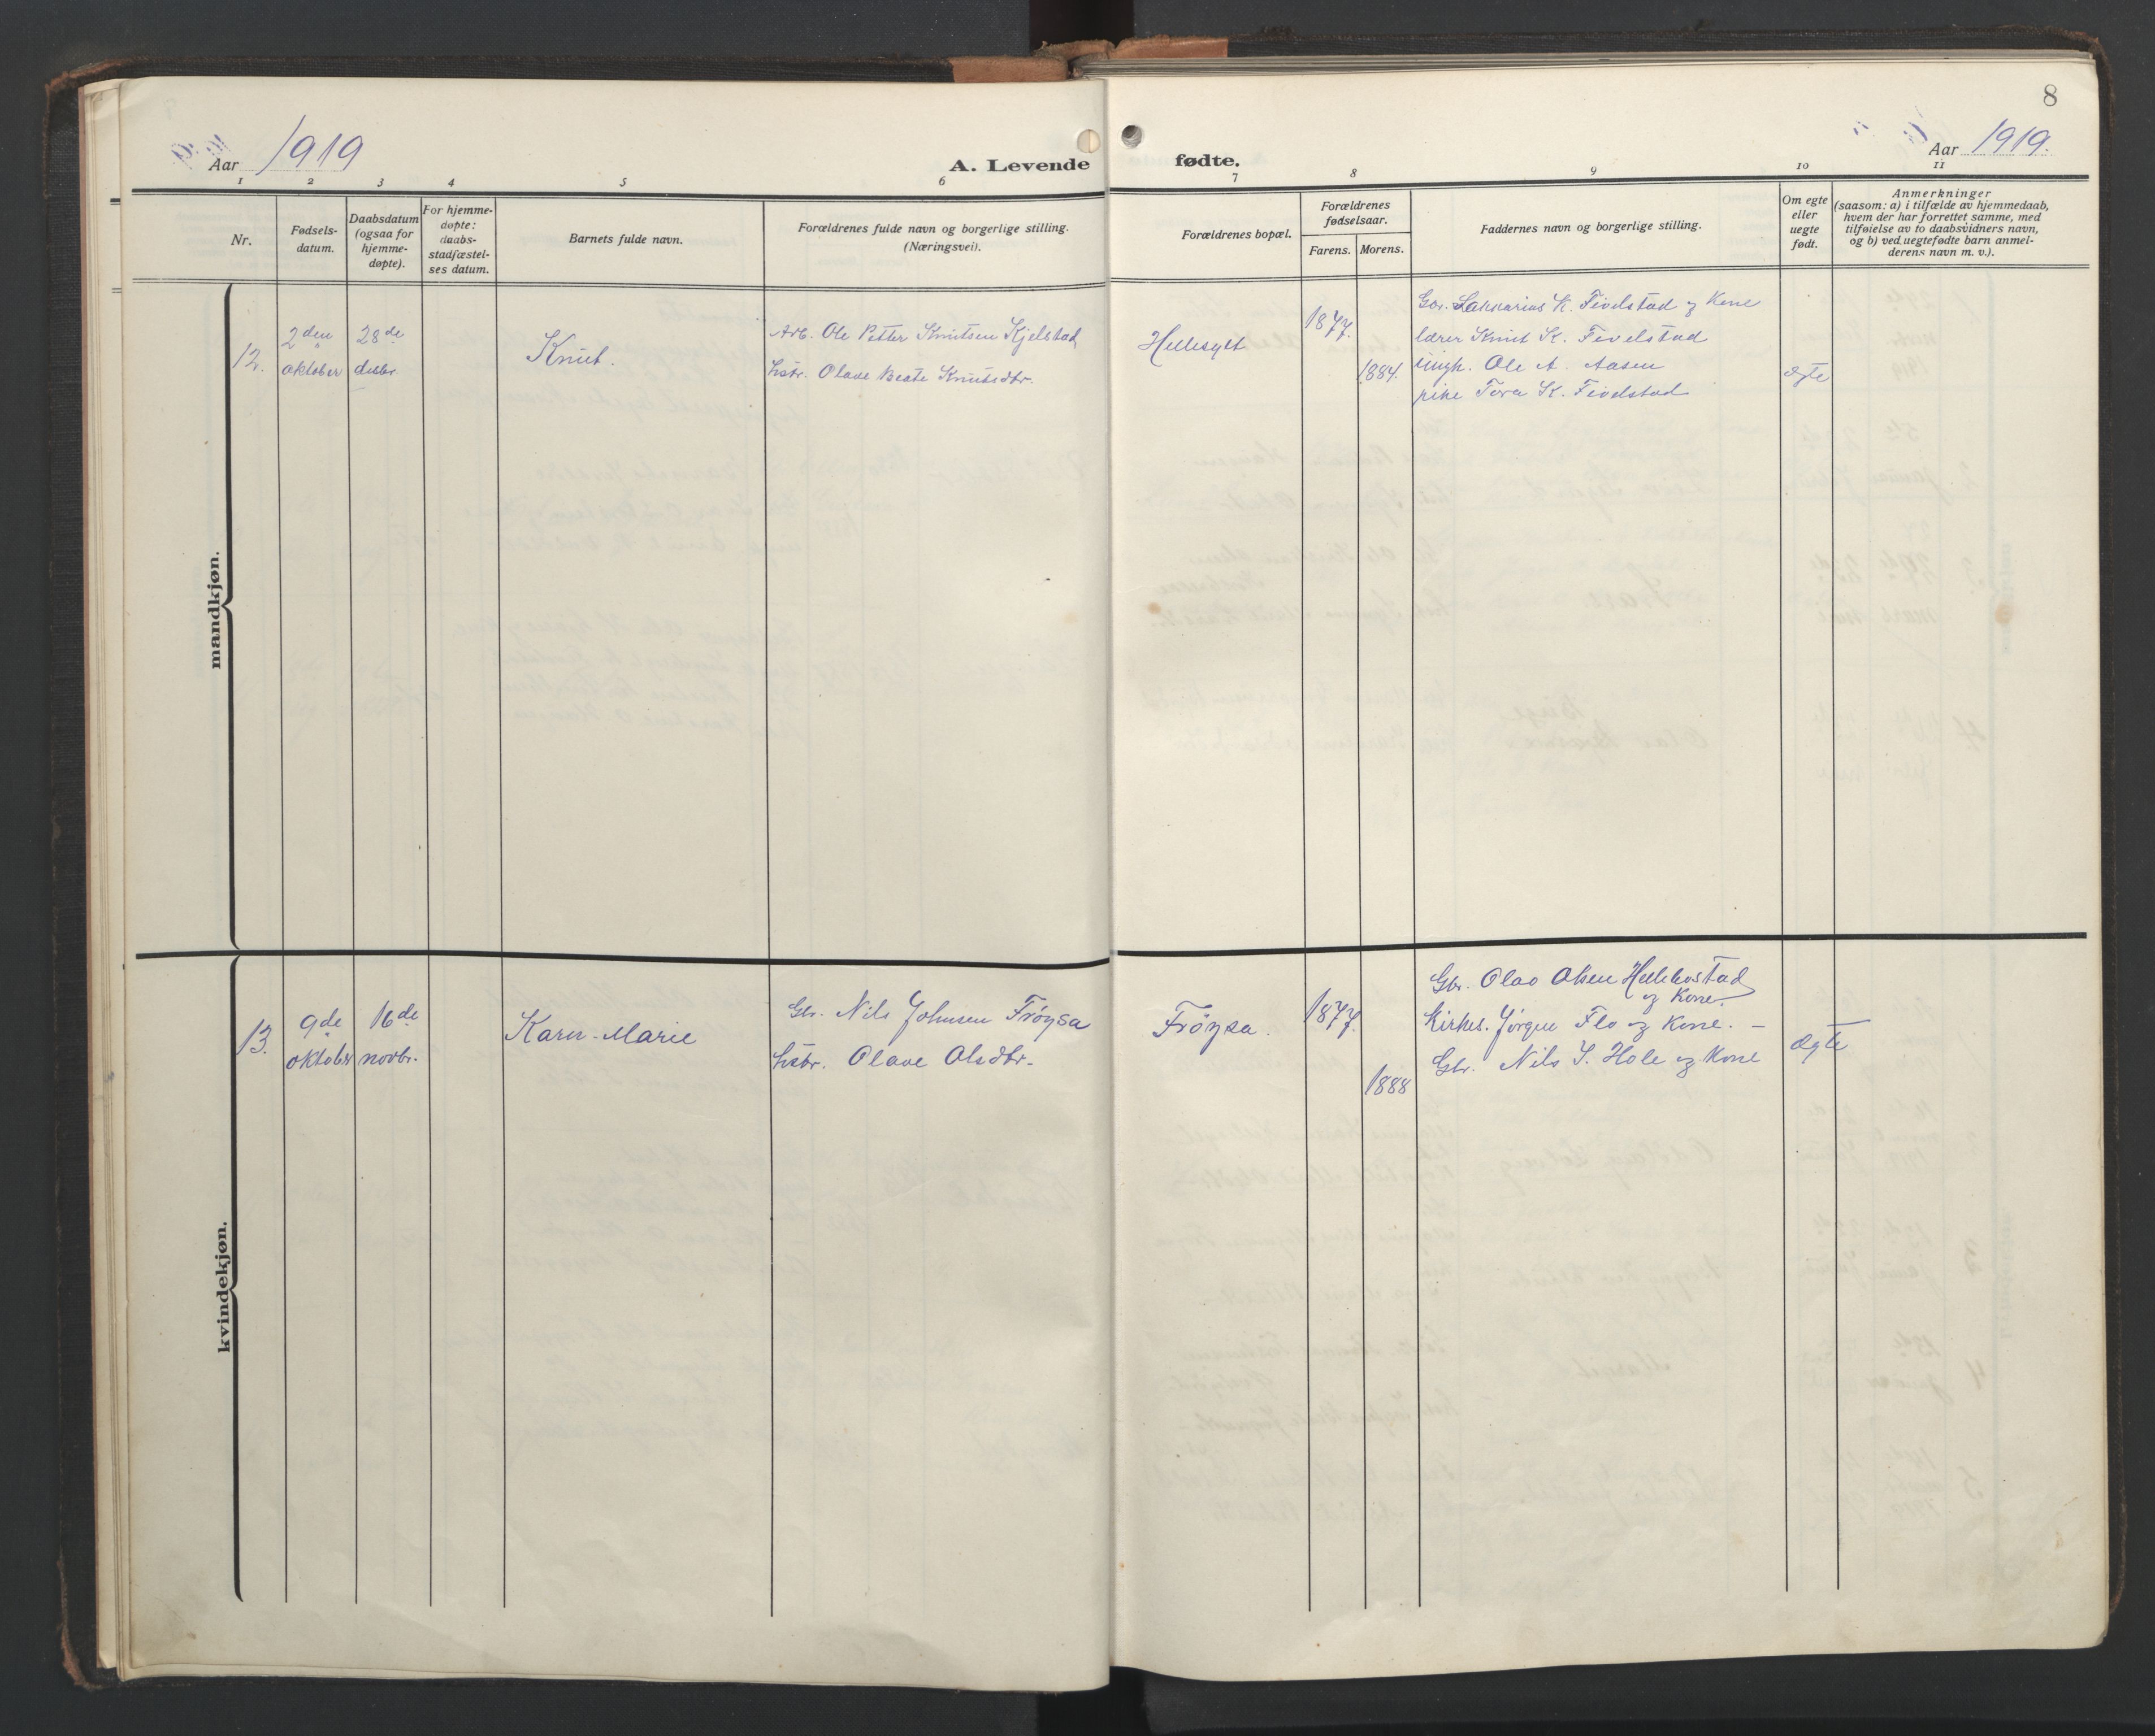 8
Aar 1919
A. Levende fødte.
Aar 1919.
1 2 3 4 5 6 7 8 9 10 11
Nr.
Fødsels-
datum.
Daabsdatum
(ogsaa for
hjemme-
døpte).
For hjemme-
døpte:
daabs-
stadfæstel-
ses datum.
Barnets fulde navn.
Forældrenes fulde navn og borgerlige stilling.
(Næringsvei).
Forældrenes bopæl.
Forældrenes
fødselsaar.
Farens. Morens.
Faddernes navn og borgerlige stilling.
Om egte
eller
uegte
født.
Anmerkninger
(saasom: a) i tilfælde av hjemmedaab,
hvem der har forrettet samme, med
tilføielse av to daabsvidners navn,
og b) ved uegtefødte barn anmel-
derens navn m. v.).
mandkjøn.
12.
2den
oktober
28de
desbr.
Knut.
Arb. Ole Petter Knutsen Kjelstad
hstr. Olave Beate Knutsdtr.
Hellesylt
1877.
1884.
Gbr. Sakkarias K. Fivelstad og Kone
lærer Knut K. Fivelstad
ungk. Ole A. Aasen
pike Tora K. Fivelstad
ægte
kvindekjøn.
13.
9de
oktober
16de
novbr.
Karen-Marie
Gbr. Nils Johnsen Frøysa
hstr. Olave Olsdtr.
Frøysa.
1877.
1888
Gbr. Olav Olsen Hellebostad
og Kone.
Kirkes. Jørgen Flo og Kone. –
Gbr. Nils J. Hole og Kone
ægte